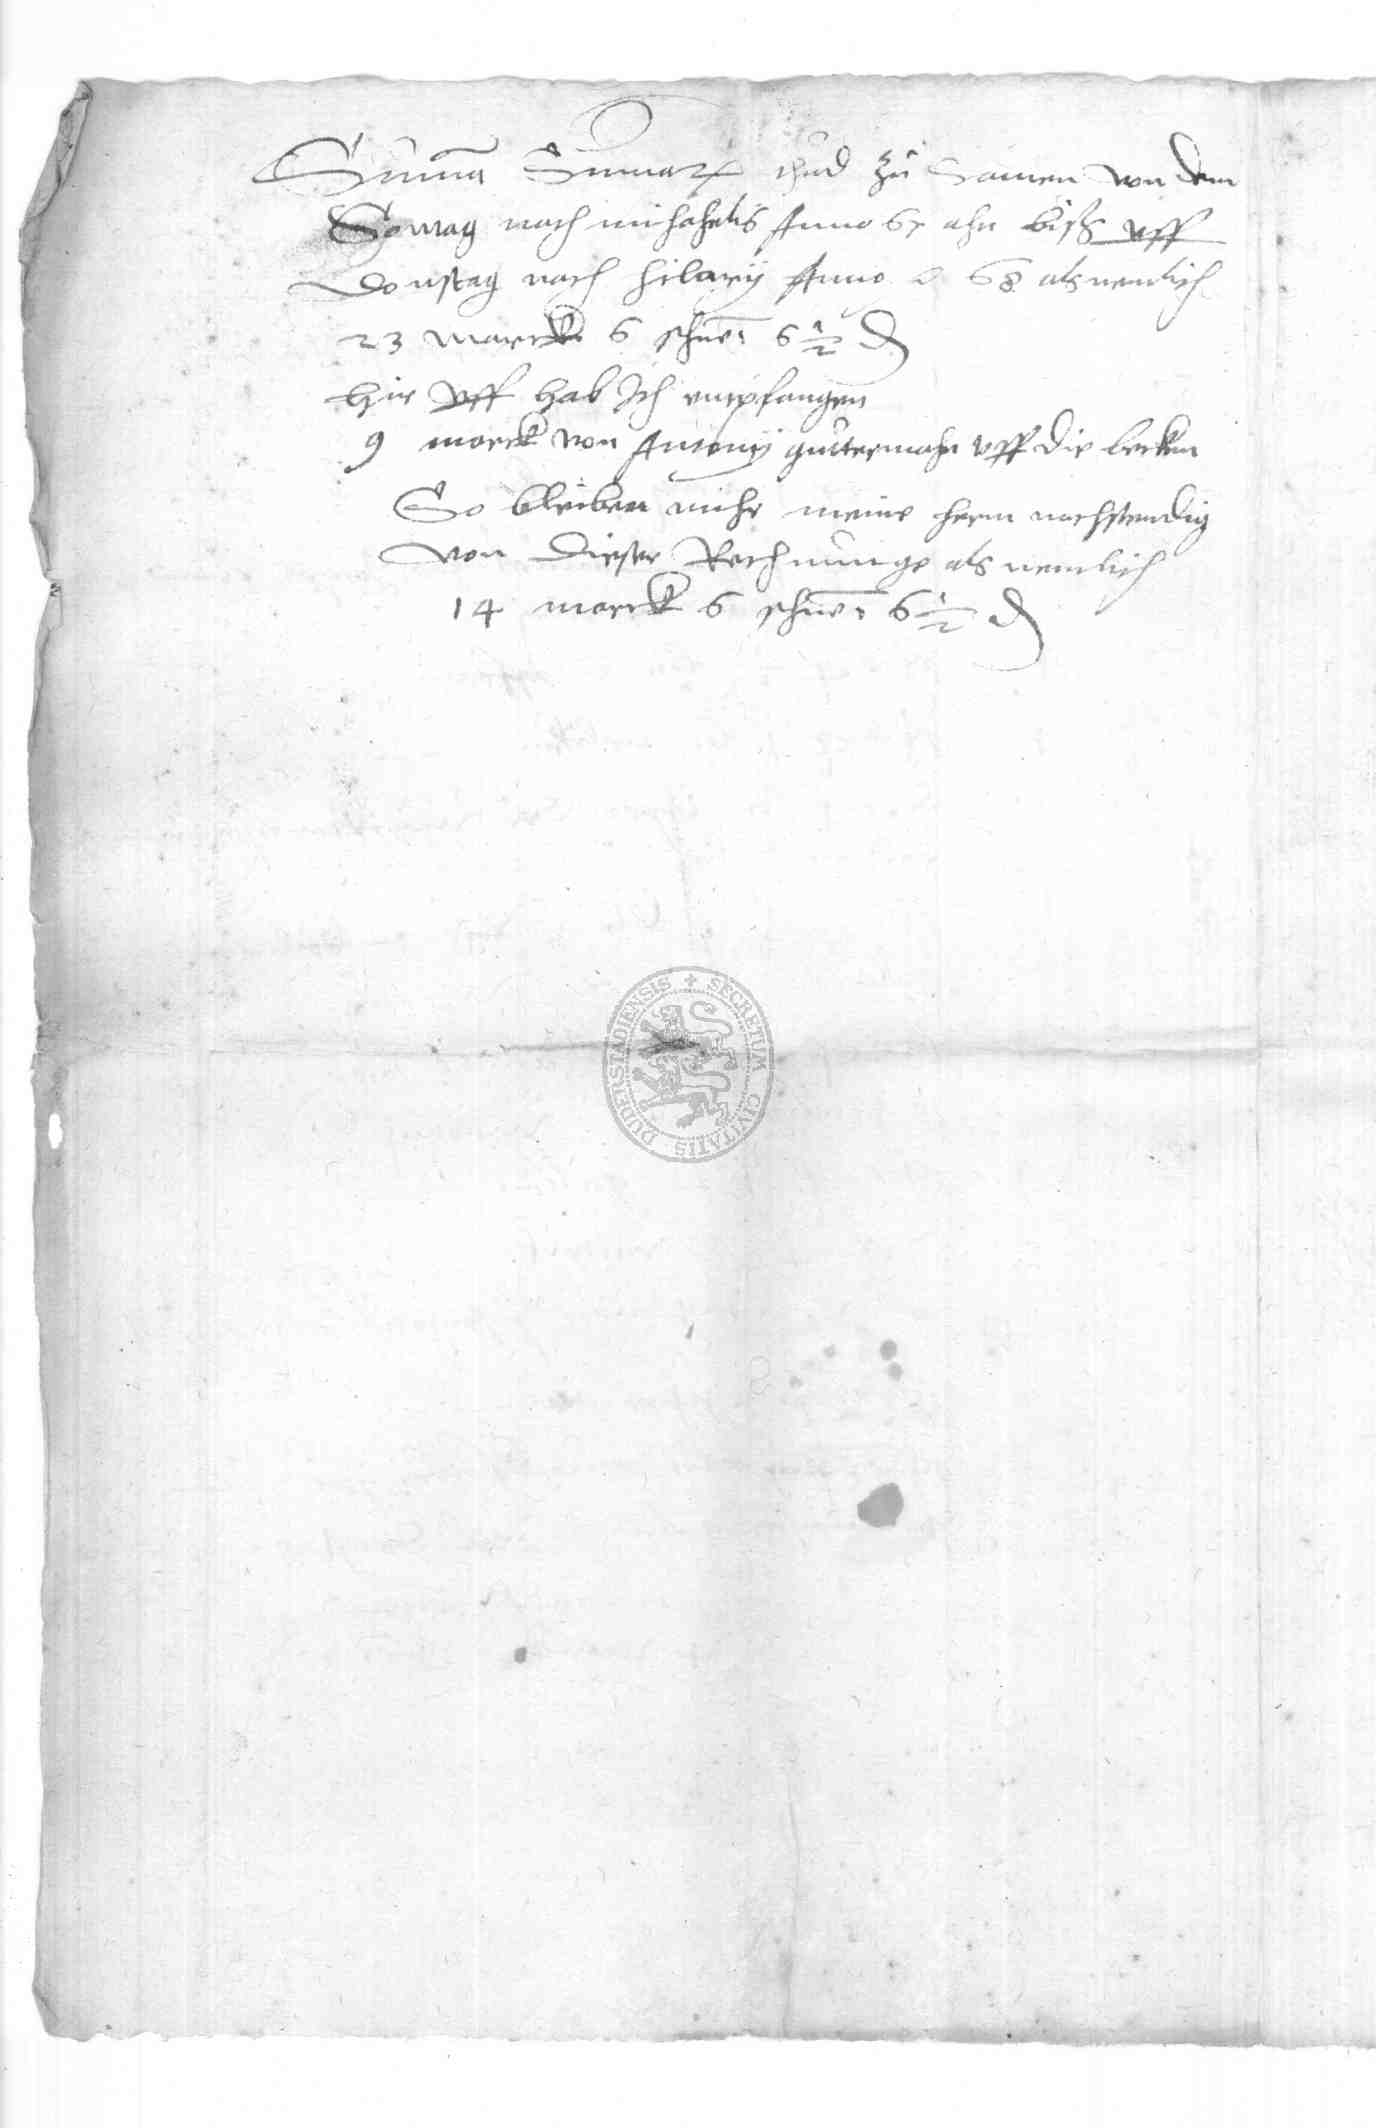 Summa Summarum thud zu Samen von dem
Somtag nach michahelis Anno 67 ahn biß uff
Donstag nach hilary Anno 68 als nemlich
23 marck 6 schne: 6 1/2 ₰
hir uff hab Ich entpfangen
9 marck von Antony guttermahn uff die becken
So bleiben mihr meine hern nachstendig
von dieser Rechnunge als nemlich
14 marck 6 schne: 6 1/2 ₰
SECRETUM CIVITATIS DUDERSTADIENSIS